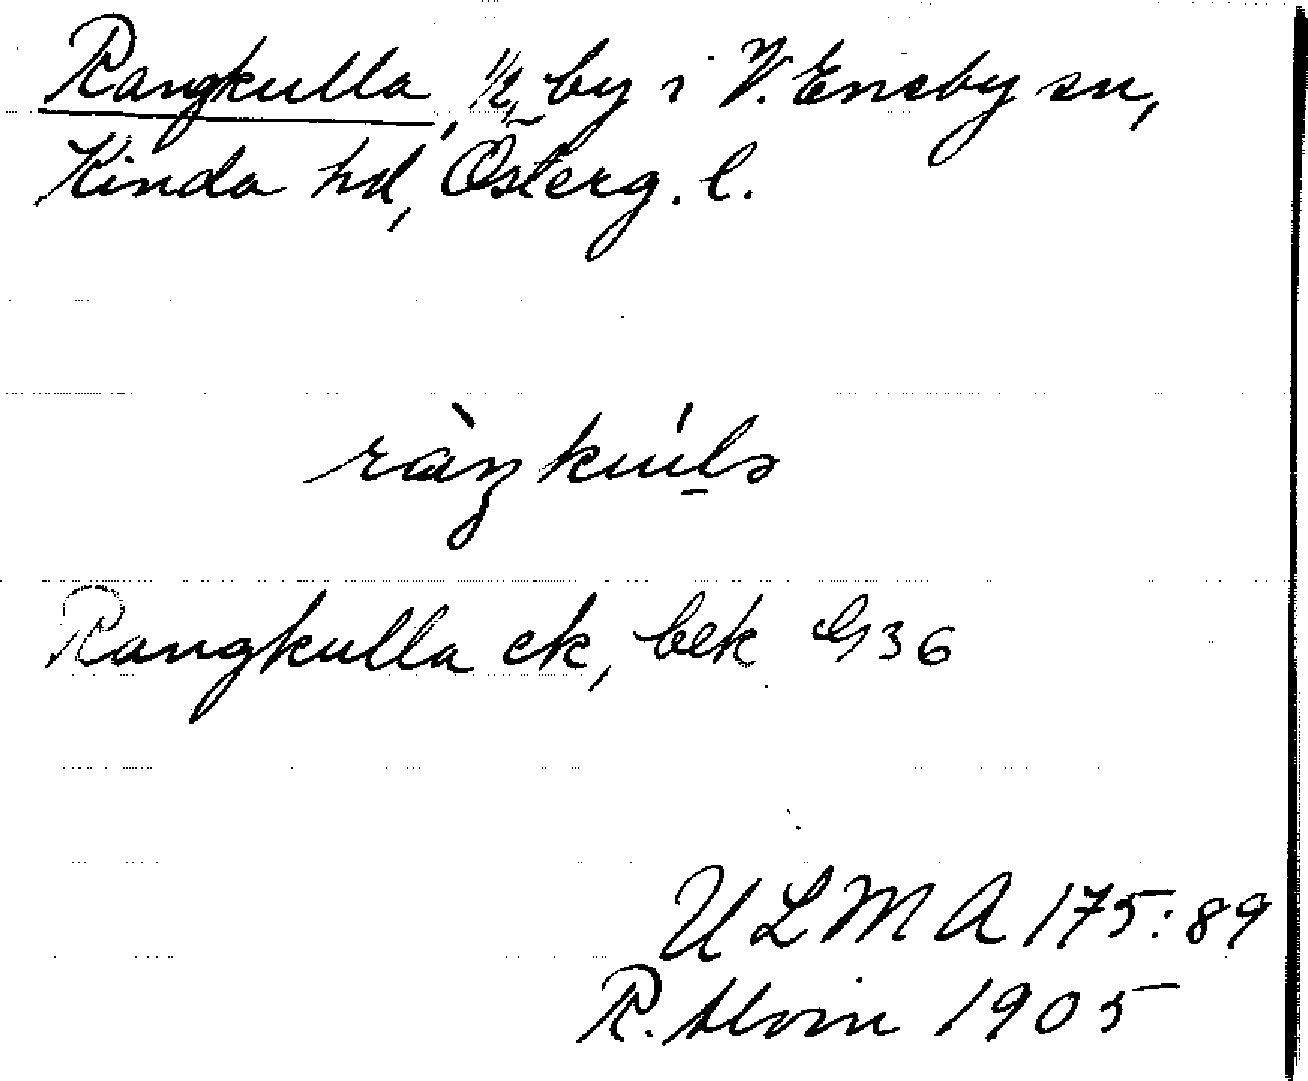 Rangkulla, 1/2, by i V. Eneby sn,
Kinda hd, Österg. l.
ràŋkúlа
Rangkulla ek, bek G36
ULMA 175:89
R. 1905